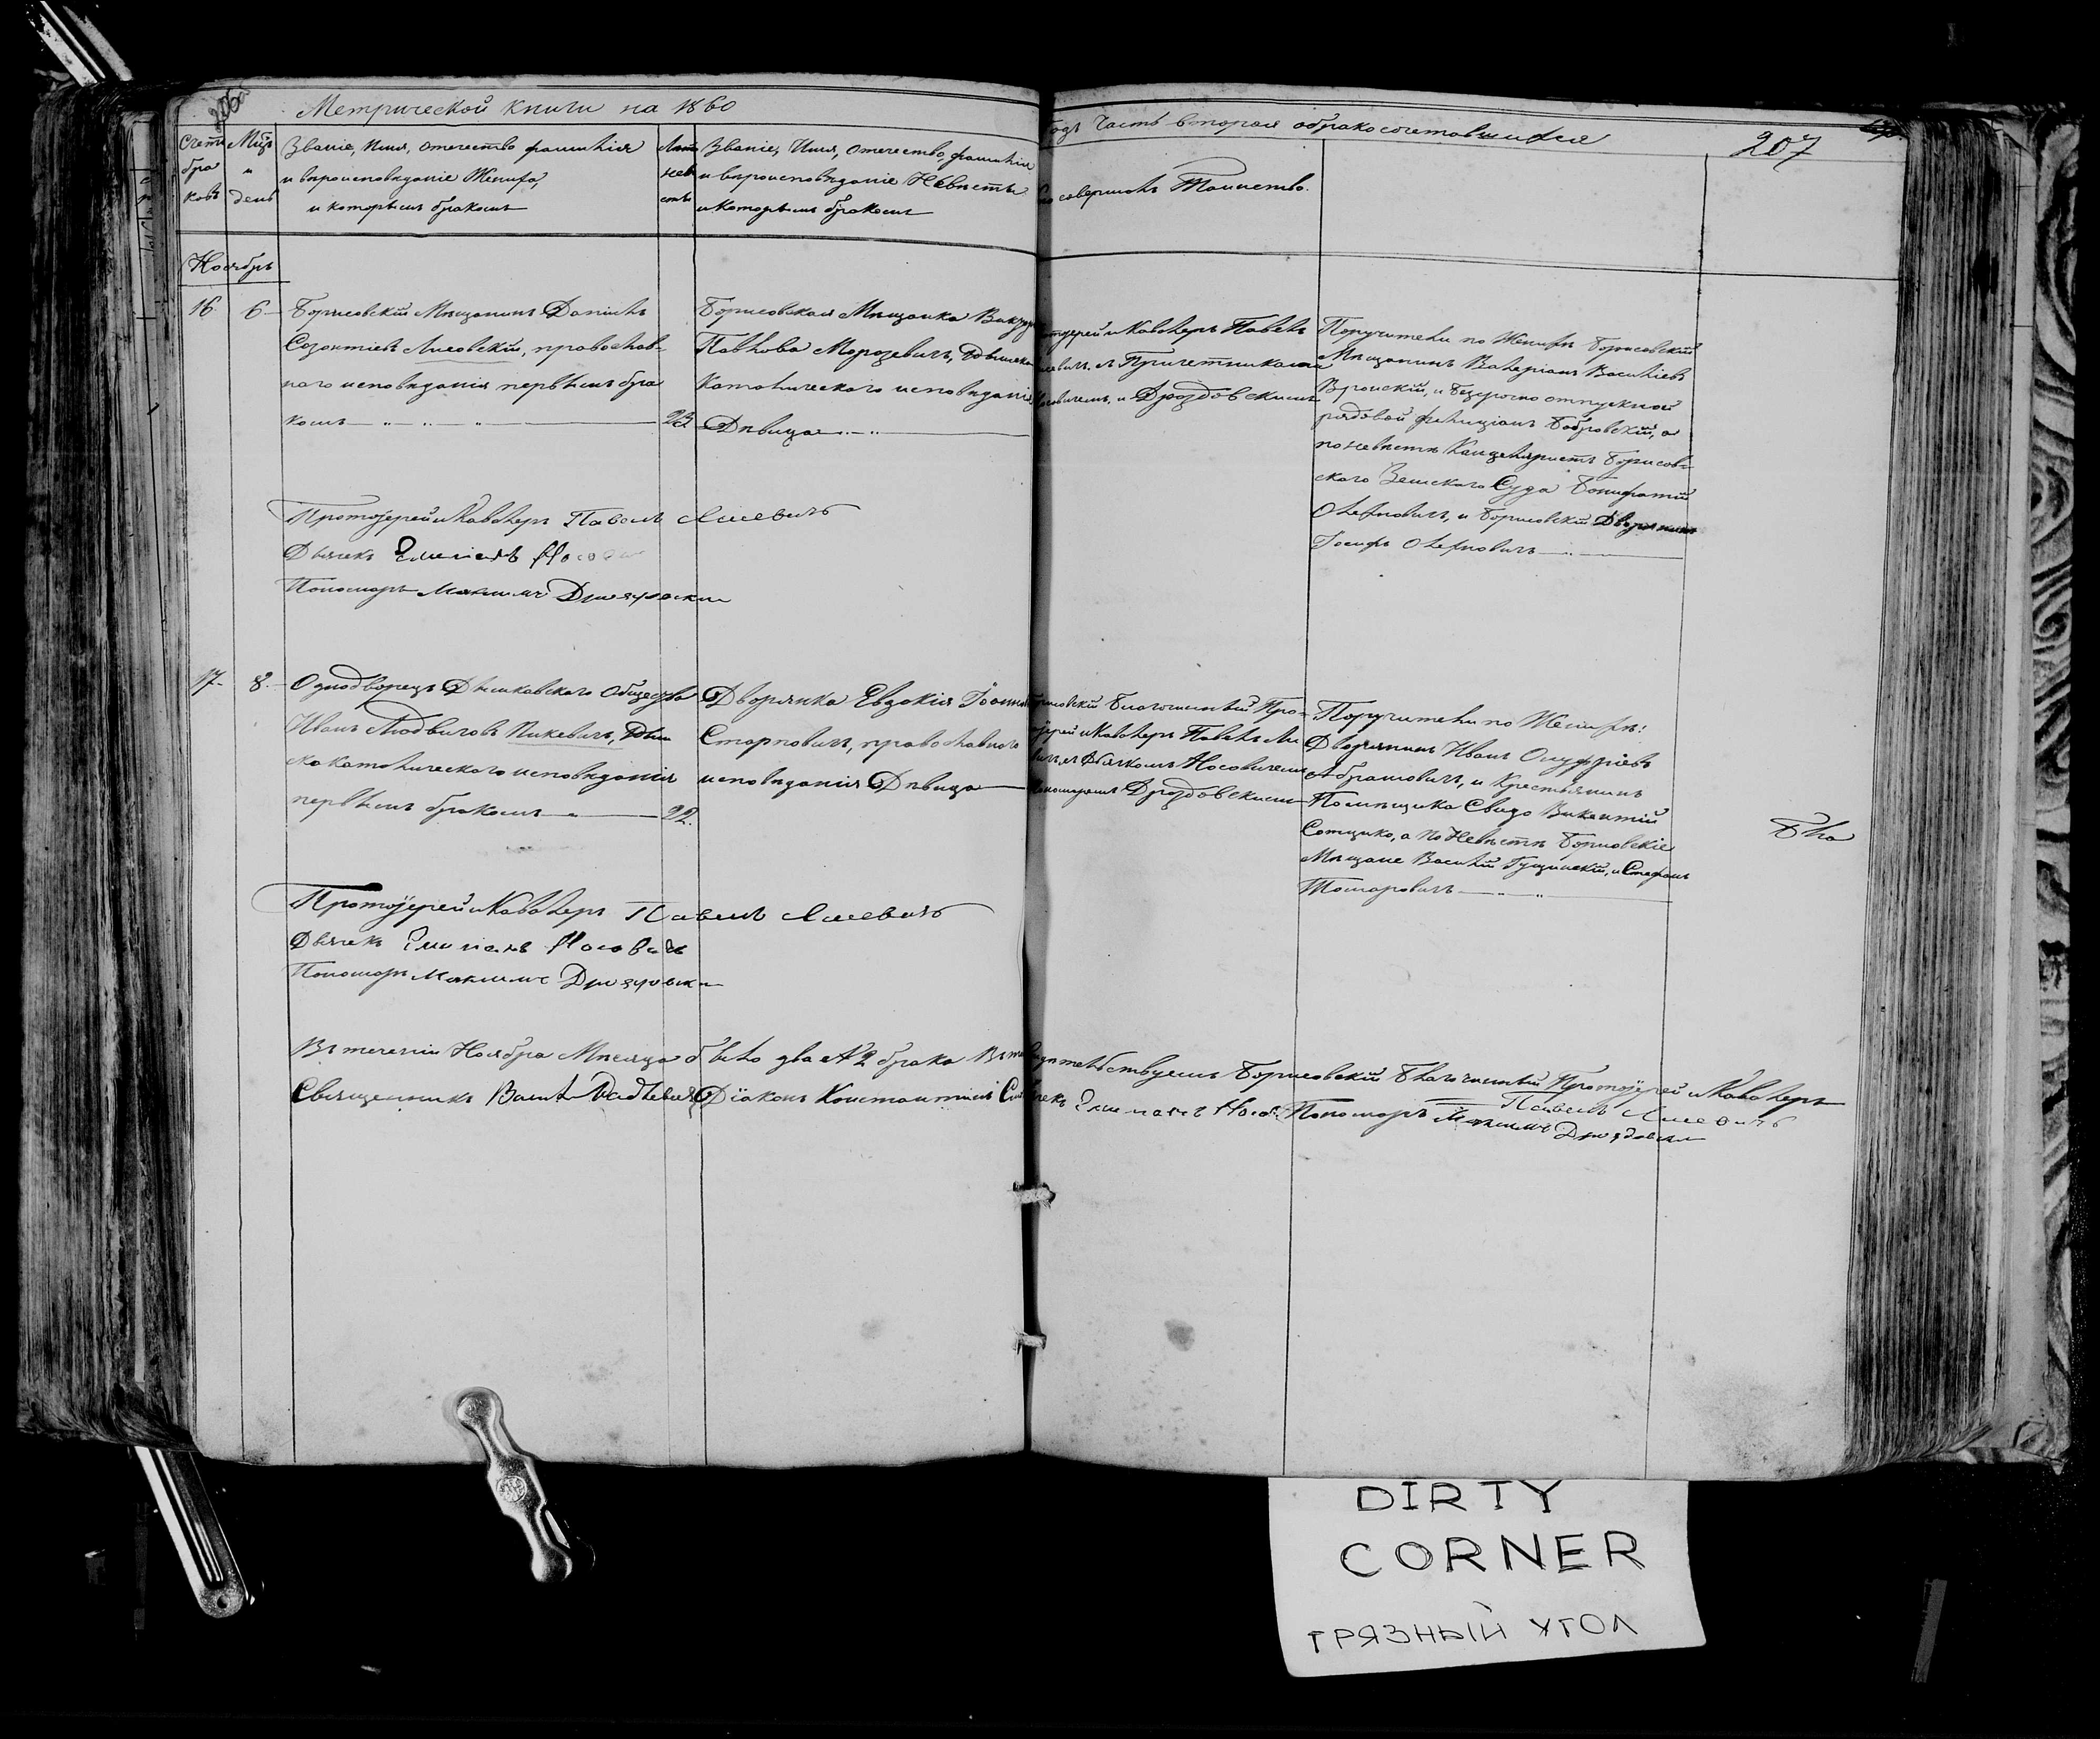 206
Метрической книги на 1860
годъ Часть вторая о бракосочетавшихся
207
Счетъ бра ковъ
Мцъ и день
Званіе, Имя, отечество фамилія
и вѣроисповѣданіе Жениха,
и которымъ бракомъ
Лѣта
Званіе, Имя, Отечество, фамилія
и вѣроисповѣданіе Невѣсты
и которымъ бракомъ
совершалъ Таинство.
Ноябрь
16 6
Борисовскій Мѣщанинъ Даніилъ
Созонтіевъ Лисовскій, православ-
наго исповѣданія первымъ бра
комъ 23
Борисовская Мѣщанка
Павлова Морозевичъ, Римско
Католического исповѣданія
Дѣвица
и Кавалеръ Павелъ
съ Причетниками
и Дроздовскимъ
Поручители по Женихѣ Борисовскій
Мѣщанинъ Валеріанъ Василіевъ
Вронскій, и безсрочно отпускной
рядовой Фелиціанъ Бобровскій, а
по невѣстѣ Канцеляристъ Борисов-
ского Земского Суда Бонифатій
Олехновичъ, и Борисовскій Дворянинъ
Іосифъ Олехновичъ
Протоіерей и Кавалеръ Павелъ Лисевичъ
Дьячекъ Емиліанъ
Пономарь Максимъ Дроздовски
17 8
Однодворецъ Общества
Иванъ Людвиговъ Пикевичъ, Рим
ско католического исповѣданія
первымъ бракомъ 22.
Дворянка Евдокія
Старновичъ, православного
исповѣданія Дѣвица
Благочинный Про-
и Кавалеръ Павелъ Ли
съ Дьячкомъ Носовичемъ
Дроздовскимъ
Поручители по Женихѣ:
Дворянинъ Иванъ Онуфріевъ
Абрамовичъ, и Крестьянинъ
Помѣщика Свидо Викентій
Сотцико, а по Невѣстѣ Борисовскіе
Мѣщане Василій Гущинскій, и Стефанъ
Томаровичъ
Протоіерей и Кавалеръ Павелъ Лисевичъ
Дьячекъ Емиліанъ Носовичъ
Пономарь Максимъ Дроздовски
Въ теченіи Ноября Мѣсяца было два № 2 брака Въ томъ свидѣтельствуемъ Борисовскій Благочинный Протоіерей и Кавалеръ
Павелъ Лисевичъ
Священникъ Діаконъ Константинъ Емиліанъ Пономарь Максимъ Дроздовски
DIRTY
CORNER
ГРЯЗНЫЙ УГОЛ